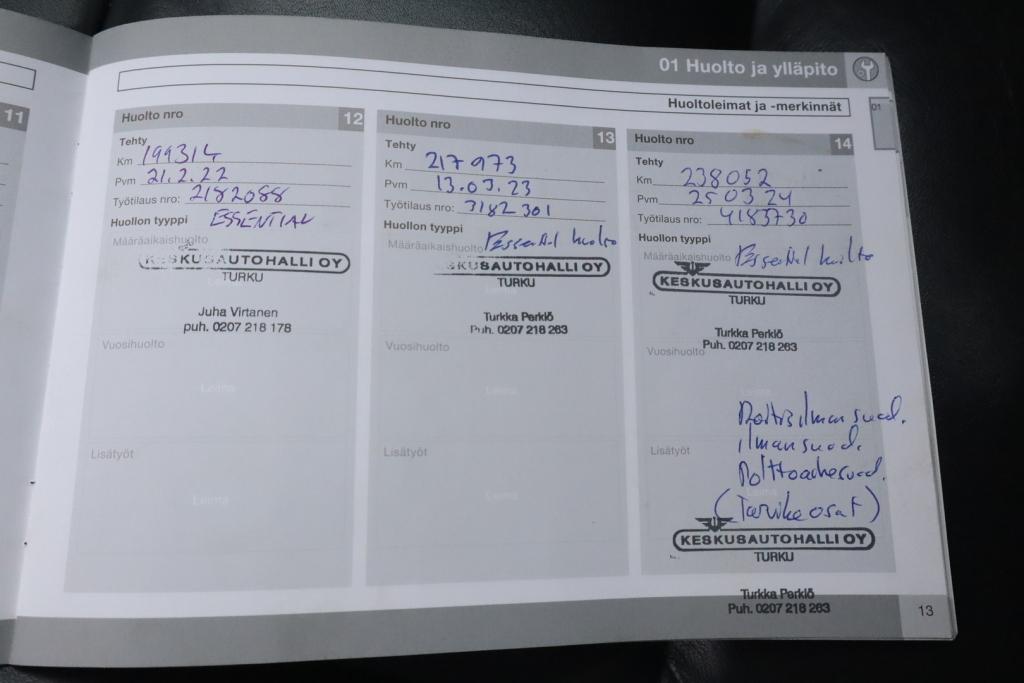 01 Huolto ja ylläpito
01
Huoltoleimat ja -merkinnät
11
Huolto nro 12
Tehty
Km 199314
Pvm 21.2.22
Työtilaus nro: 2182088
Huollon tyyppi ESSENTIAL
Määräaikaishuolto
KESKUSAUTOHALLI OY
TURKU
Juha Virtanen
puh. 0207 218 178
Vuosihuolto
Leima
Lisätyöt
Leima
Huolto nro 13
Tehty
Km 217973
Pvm 13.03.23
Työtilaus nro: 3182301
Huollon tyyppi
Määräaikaishuolto Essential huolto
KESKUSAUTOHALLI OY
TURKU
Turkka Perkiö
Puh. 0207 218 263
Vuosihuolto
Leima
Lisätyöt
Leima
Huolto nro 14
Tehty
Km 238052
Pvm 25 03 24
Työtilaus nro: 4183730
Huollon tyyppi
Määräaikaishuolto Essential huolto
KESKUSAUTOHALLI OY
TURKU
Turkka Perkiö
Puh. 0207 218 263
Vuosihuolto
Leima
Raitisilmansuod.
ilmansuod.
Lisätyöt Polttoainesuod.
Leima
(Tarvikeosat)
KESKUSAUTOHALLI OY
TURKU
Turkka Perkiö
Puh. 0207 218 263
13